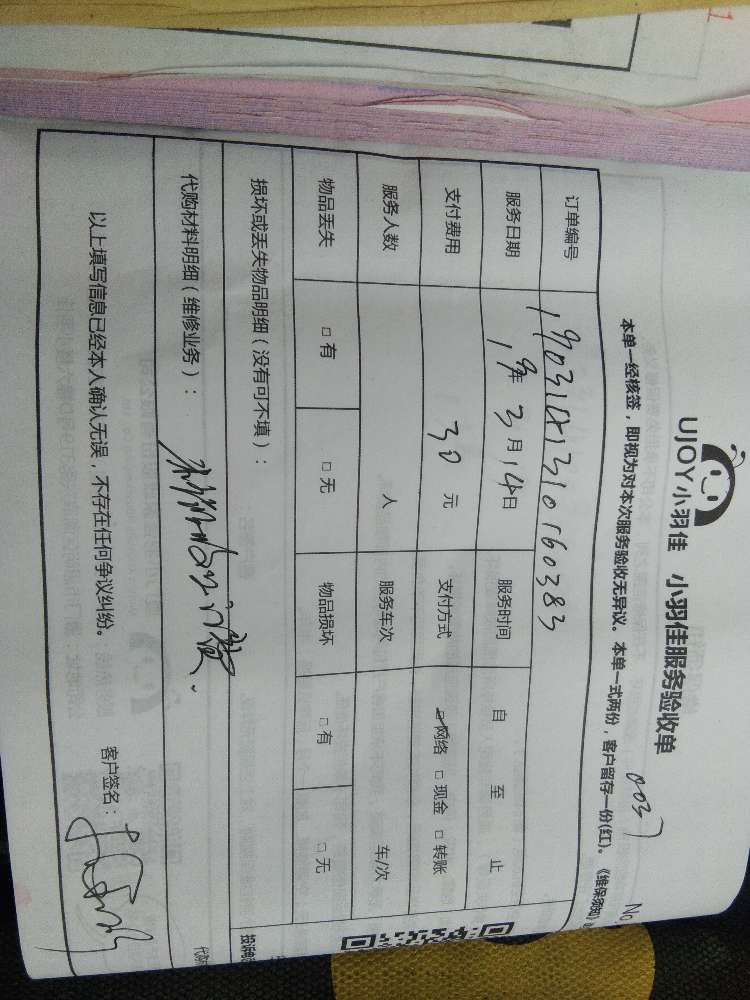 UJOY小羽佳 小羽佳服务验收单
0037
No
本单一经核签，即视为对本次服务验收无异议。本单一式两份，客户留存一份(红)。《维保须知》
订单编号
服务日期 19年 3月 14日 服务时间 自 至 止
支付费用 30 元 支付方式 □网络 □现金 □转账
服务人数 人 服务车次 车/次
物品丢失 □有 □无 物品损坏 □有 □无
损坏或丢失物品明细（没有可不填）：
代购材料明细（维修业务）：
以上填写信息已经本人确认无误，不存在任何争议纠纷。 客户签名：
投诉电
代